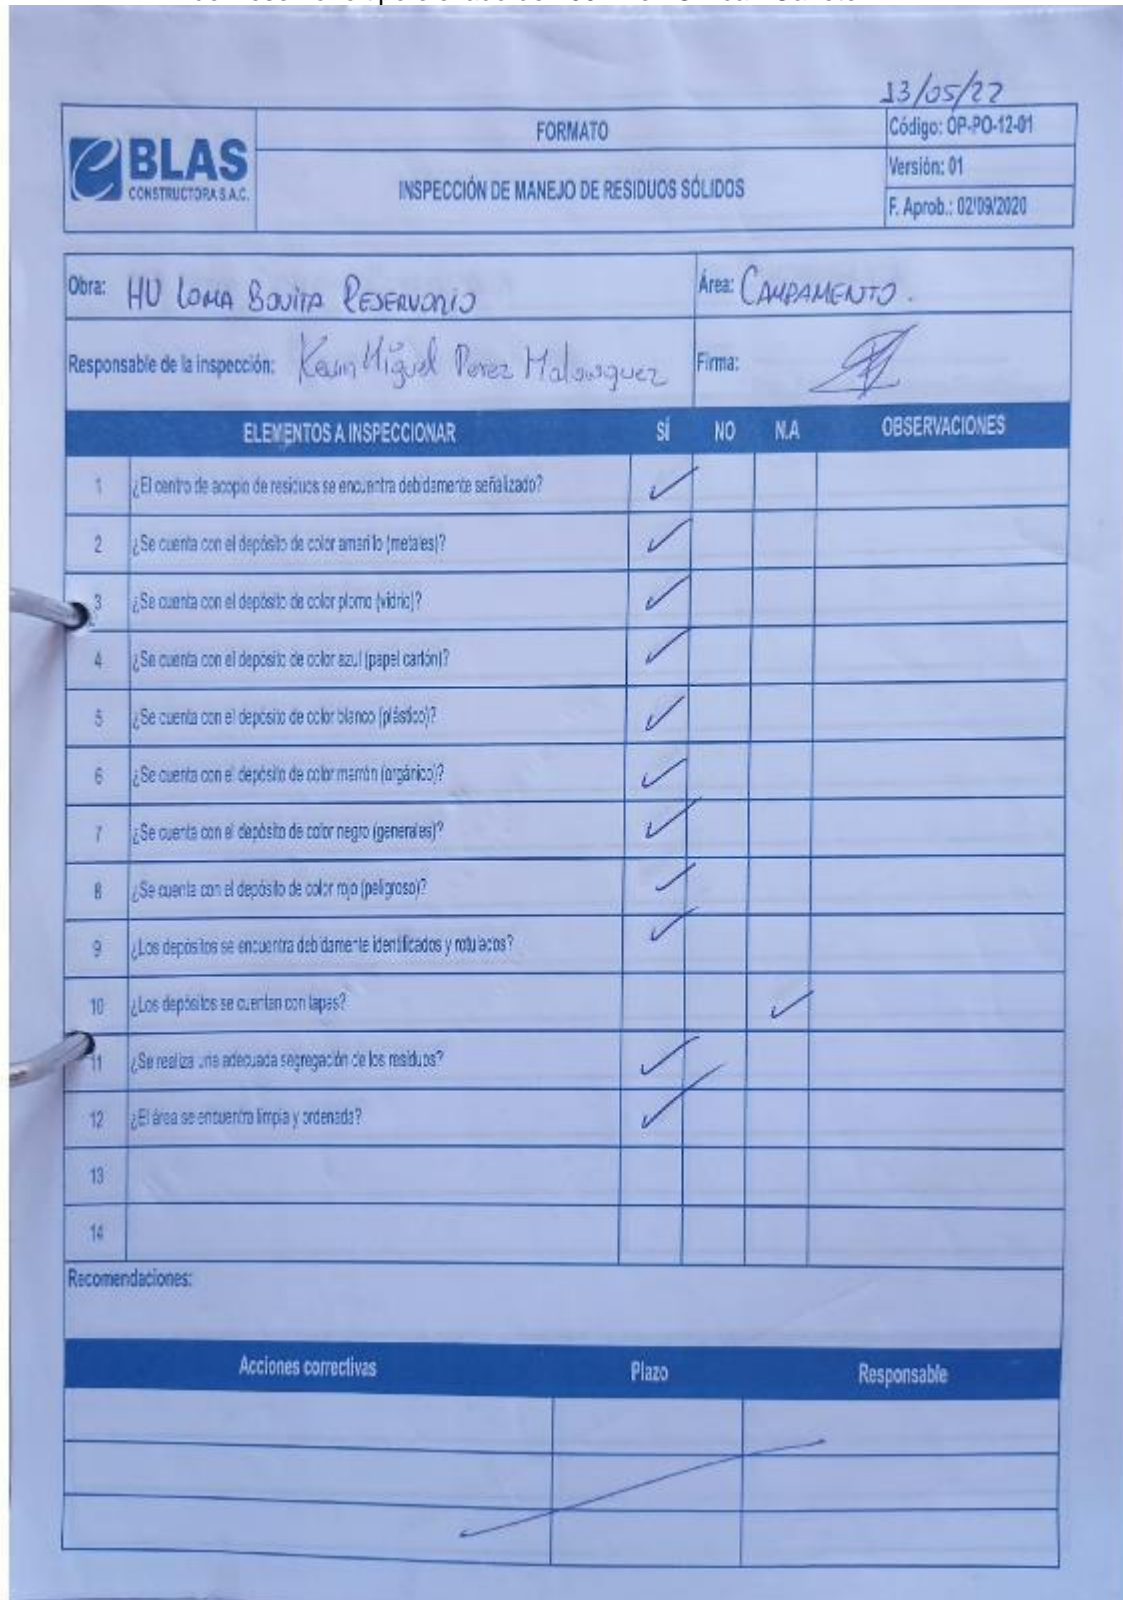 13/05/22
BLAS
CONSTRUCTORA S.A.C.
FORMATO
INSPECCIÓN DE MANEJO DE RESIDUOS SÓLIDOS
Código: OP-PO-12-01
Versión: 01
F. Aprob.: 02/09/2020
Obra: HU LOMA BONITA RESERVORIO
Área: CAMPAMENTO.
Responsable de la inspección: Kevin Miguel Perez
Firma:
ELEMENTOS A INSPECCIONAR SÍ NO N.A OBSERVACIONES
1 ¿El centro de acopio de residuos se encuentra debidamente señalizado? ✓
2 ¿Se cuenta con el depósito de color amarillo (metales)? ✓
3 ¿Se cuenta con el depósito de color plomo (vidrio)? ✓
4 ¿Se cuenta con el depósito de color azul (papel cartón)? ✓
5 ¿Se cuenta con el depósito de color blanco (plástico)? ✓
6 ¿Se cuenta con el depósito de color marrón (orgánico)? ✓
7 ¿Se cuenta con el depósito de color negro (generales)? ✓
8 ¿Se cuenta con el depósito de color rojo (peligroso)? ✓
9 ¿Los depósitos se encuentra debidamente identificados y rotulados? ✓
10 ¿Los depósitos se cuentan con tapas? ✓
11 ¿Se realiza una adecuada segregación de los residuos? ✓
12 ¿El área se encuentra limpia y ordenada? ✓
13
14
Recomendaciones:
Acciones correctivas Plazo Responsable